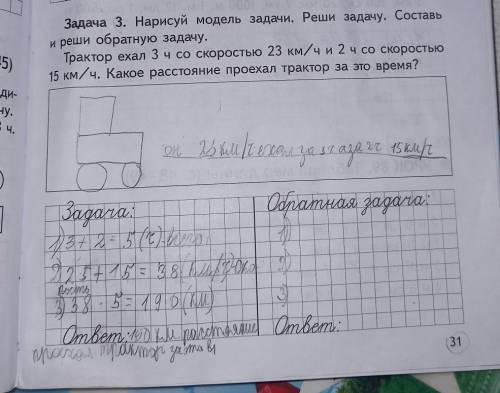 Задача 3. Нарисуй модель задачи. Реши задачу. Составь
и реши обратную задачу.
Трактор ехал 3 ч со скоростью 23 км/ч и 2 ч со скоростью
15 км/ч. Какое расстояние проехал трактор за это время?
5)
ди-
ну.
ч.
он 23 км/ч ехал за 15 км/ч
Задача:
1) 3+2=5(ч)-всего
2) 23+15=38(км/ч)-ско
рость
3) 38·5=190(км)
Ответ: 190 км расстояние
проехал трактор за это в
Обратная задача:
1)
2)
3)
Ответ:
31